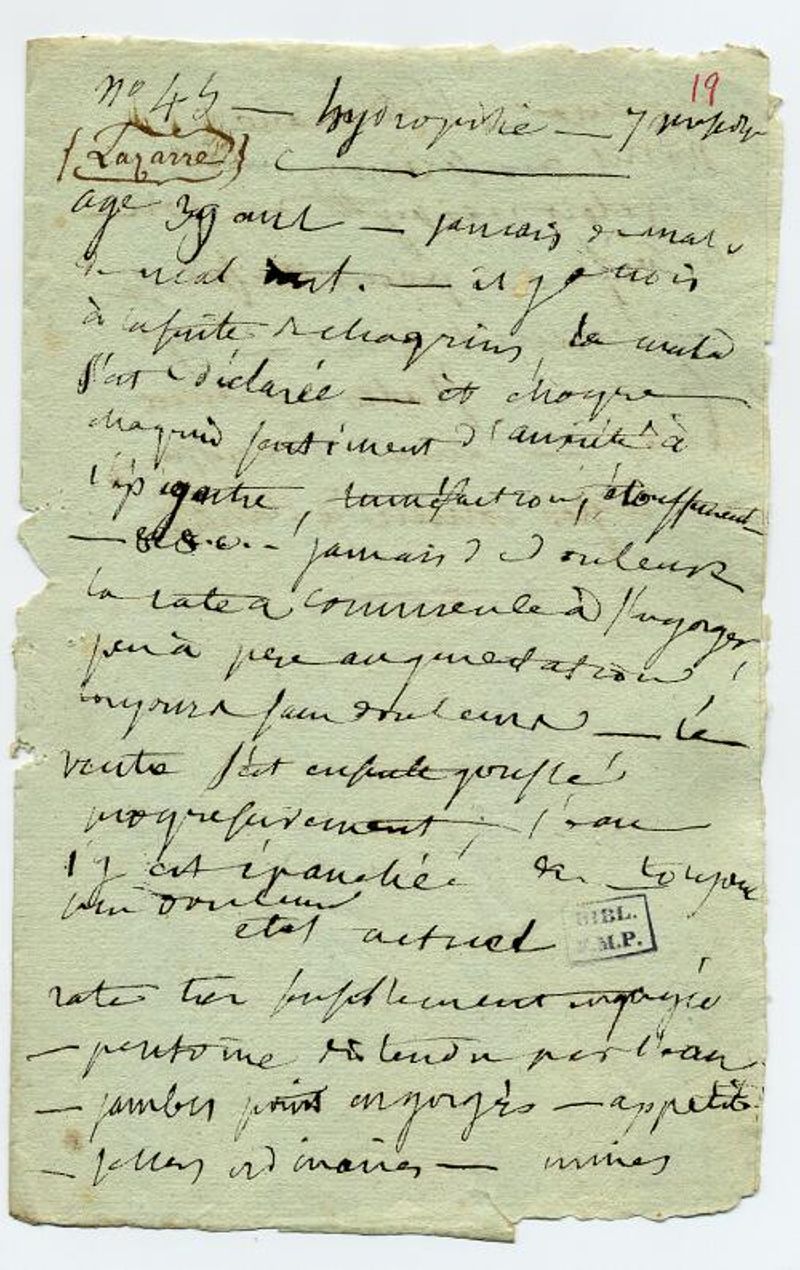 19
nº 45 — hydropisie — 7
{Lazarre}
age 39 ans — jamais de mal
de — il y a 4 mois
à la suite de chagrins, la maladie
s'est déclarée — et chaque
chagrin sentiment d'anxiété à
l'épigastre, tuméfaction, étouffement
— &.&.&. — jamais de douleurs
la rate a commencé à s'engorger
peu à peu augmentation,
toujours sans douleurs — le
ventre s'est ensuite gonflé
progressivement, l'eau
s'y est épanchée toujours
sans douleurs
etat actuel
rate très sensiblement engorgée
— peritoine distendu par l'eau
— jambes point engorgés — appétit
— selles ordinaires — urines
BIBL.
F.M.P.